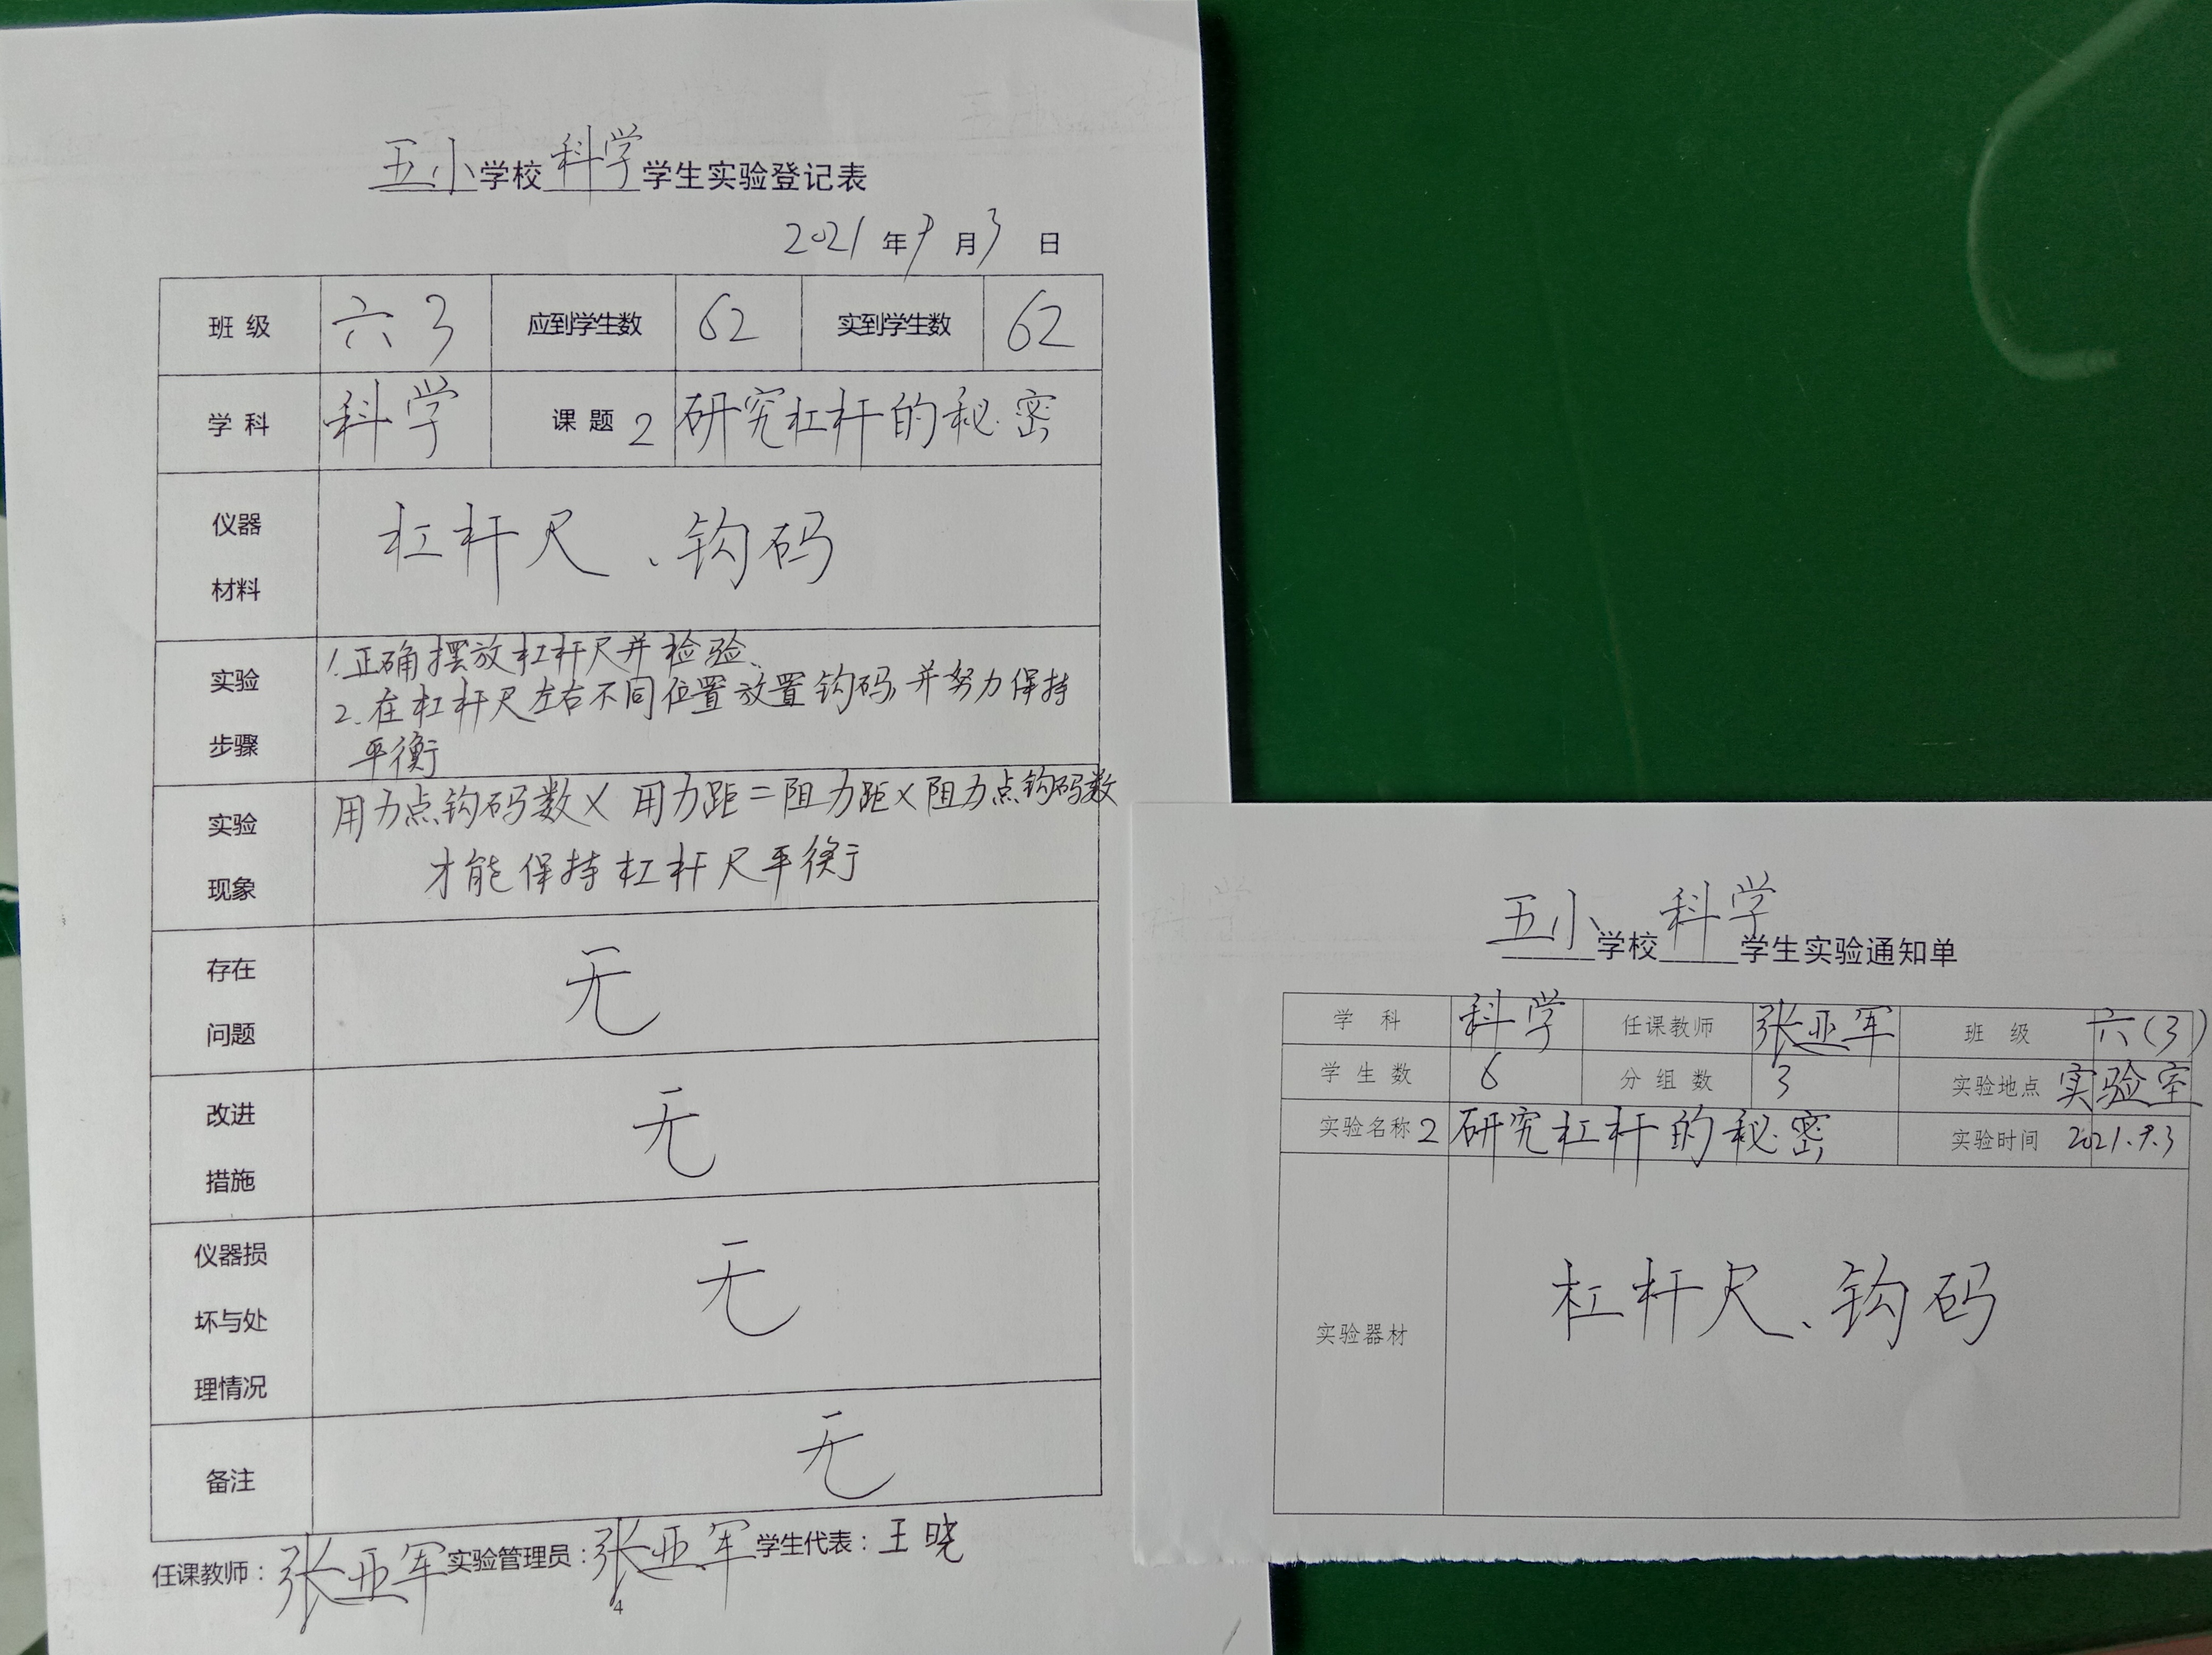 五小学校科学学生实验登记表
2021年9月3日
班级 六3 应到学生数 62 实到学生数 62
学科 科学 课题2 研究杠杆的秘密
仪器材料 杠杆尺、钩码
实验步骤 1.正确摆放杠杆尺并检验、
2.在杠杆尺左右不同位置放置钩码,并努力保持
平衡
实验现象 用力点钩码数×用力距=阻力距×阻力点钩码数
才能保持杠杆尺平衡
存在问题 无
改进措施 无
仪器损坏与处理情况 无
备注 无
任课教师:张亚军 实验管理员:张亚军 学生代表:王晓
4
五小学校科学学生实验通知单
学科 科学 任课教师 张亚军 班级 六(3)
学生数 6 分组数 3 实验地点 实验室
实验名称2 研究杠杆的秘密 实验时间 2021.9.3
实验器材 杠杆尺、钩码